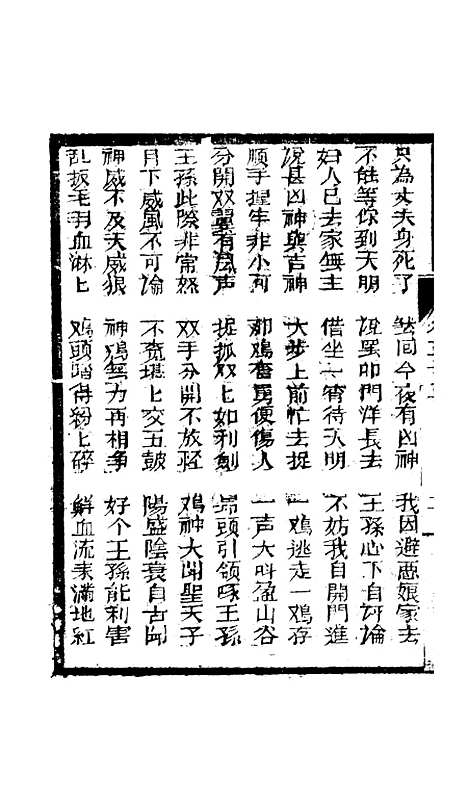 只為丈夫身死了 然間今夜有凶神 我因避惡娘家去
不能等你到天明 說罢叩門洋長去 王孫心下自評論
妇人已去家無主 借坐一宵待天明 不妨我自開門進
說甚凶神與吉神 大步上前忙去捉 一鸡逃走一鸡存
顺手捏牢非小可 那鸡奋勇便傷人 一声大叫盈山谷
分開双翼有风声 捉抓双上如利劍 昂頭引领啄王孫
王孫此際非常怒 双手分開不放輕 鸡神大閙聖天子
月下威風不可論 不覚堪上交五鼓 陽盛陰衰自古闻
神威不及天威狠 神鸡無力再相争 好个王孫能利害
乱扳毛羽血淋上 鸡頭啃得粉上碎 鮮血流来滿地紅